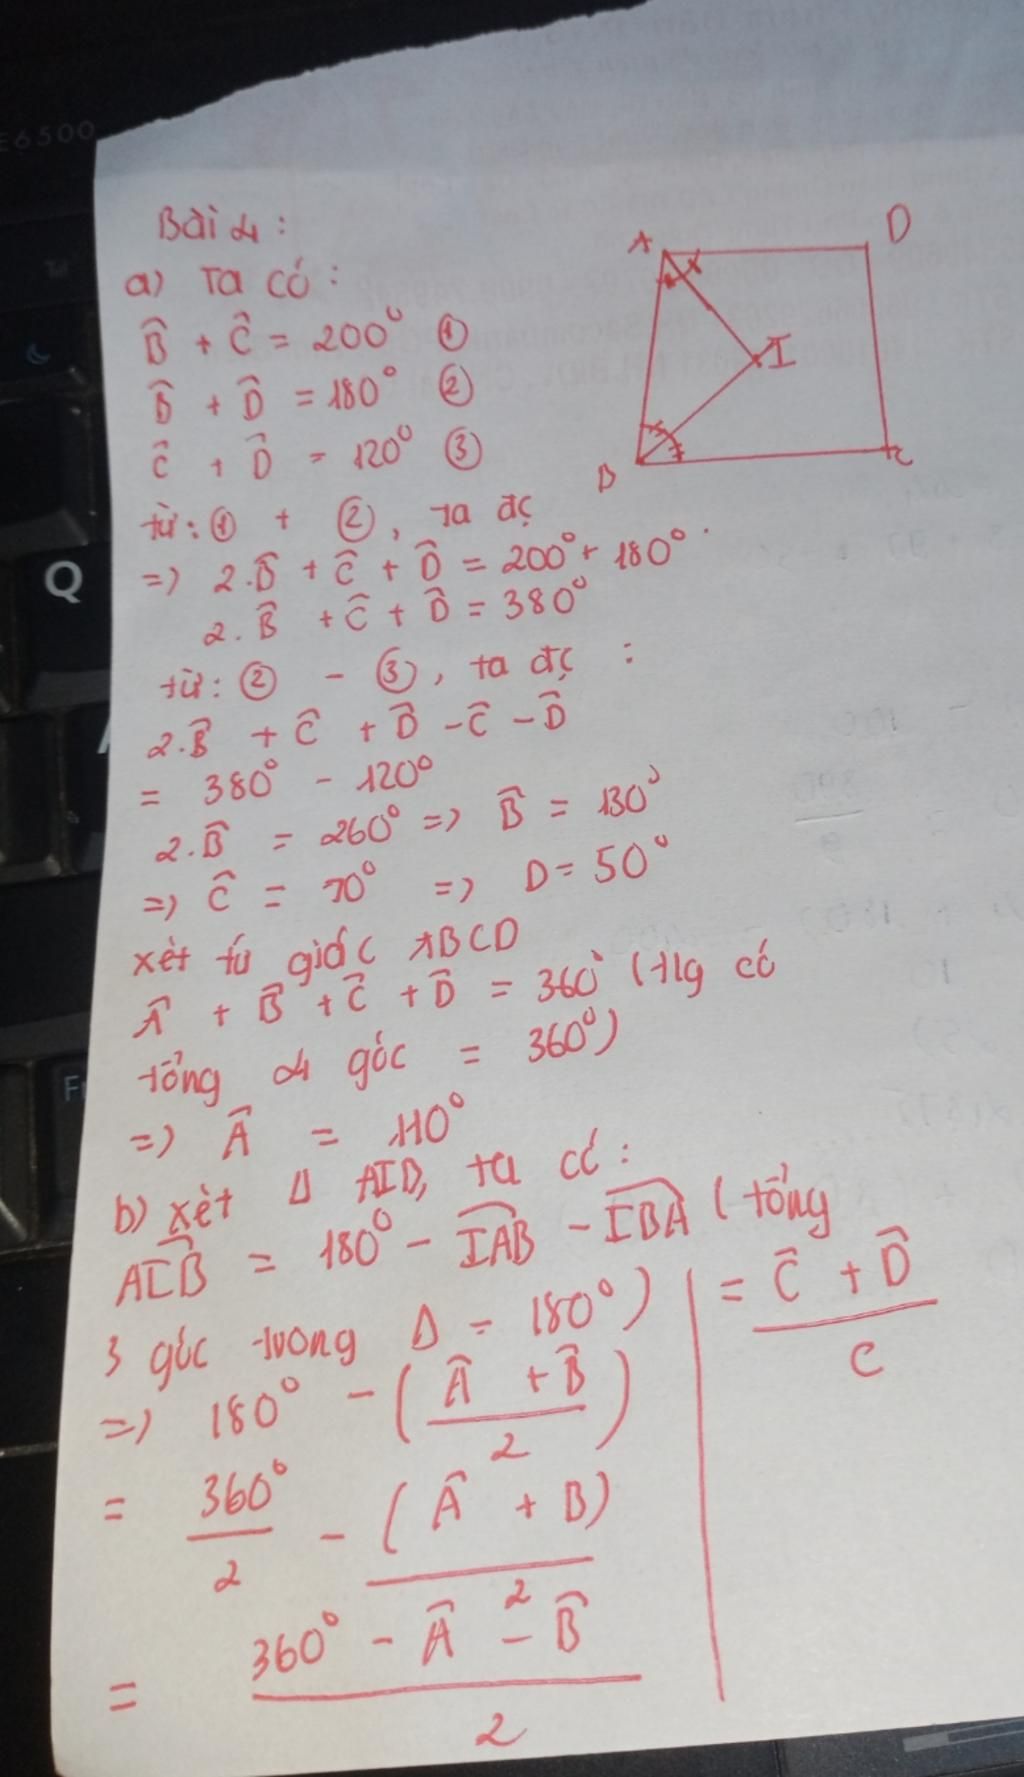 E6500
Q
Bài 4:
a) Ta có:
B̂ + Ĉ = 200° ①
B̂ + D̂ = 180° ②
Ĉ + D̂ = 120° ③
từ: ① + ②, ta đc
=> 2.B̂ + Ĉ + D̂ = 200° + 180°
2.B̂ + Ĉ + D̂ = 380°
từ: ② - ③, ta đc :
2.B̂ + Ĉ + D̂ - Ĉ - D̂
= 380° - 120°
2.B̂ = 260° => B̂ = 130°
=> Ĉ = 70° => D = 50°
xét tứ giác ABCD
Â + B̂ + Ĉ + D̂ = 360° (Hg có
tổng 4 góc = 360°)
=> Â = 110°
b) xét Δ AIB, ta có:
AIB = 180° - IAB - IBA (tổng
3 góc trong Δ = 180°)
=> 180° - (Â + B̂ / 2)
= 360° / 2 - (Â + B) / 2
= 360° - Â - B̂ / 2
= Ĉ + D̂ / C
A
D
I
B
C